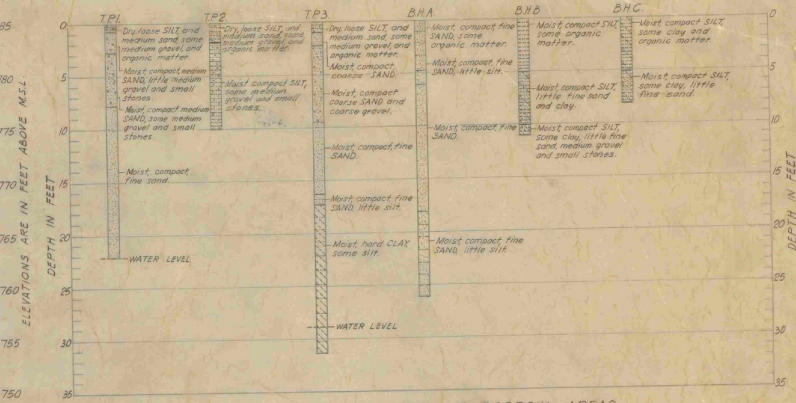 T.P.1.
T.P.2
T.P.3.
B.H.A
B.H.B
B.H.C.
Dry, loose SILT, and
medium sand, some
medium gravel, and
organic matter.
Moist, compact, medium
SAND, little medium
gravel and small
stones.
Moist, compact medium
SAND, some medium
gravel and small
stones.
Moist, compact,
fine sand.
WATER LEVEL
Dry, loose SILT, and
medium sand, some
medium gravel and
organic matter.
Moist compact SILT,
some medium
gravel and small
stones.
Dry, loose SILT, and
medium sand, some
medium gravel, and
organic matter.
Moist, compact
coarse SAND.
Moist, compact
coarse SAND and
coarse gravel.
Moist, compact, fine
SAND.
Moist, compact, fine
SAND, little silt.
Moist, hard CLAY,
some silt.
WATER LEVEL
Moist, compact, fine
SAND, some
organic matter.
Moist, compact, fine
SAND, little silt.
Moist, compact, fine
SAND.
Moist, compact, fine
SAND, little silt.
Moist, compact SILT,
some organic
matter.
Moist, compact SILT,
little fine sand
and clay.
Moist, compact SILT,
some clay, little fine
sand, medium gravel
and small stones.
Moist, compact SILT,
some clay and
organic matter.
Moist, compact SILT,
some clay, little
fine sand.
ELEVATIONS ARE IN FEET ABOVE M.S.L.
85
780
775
770
765
760
755
750
DEPTH IN FEET
0
5
10
15
20
25
30
35
DEPTH IN FEET
0
5
10
15
20
25
30
35
AREAS